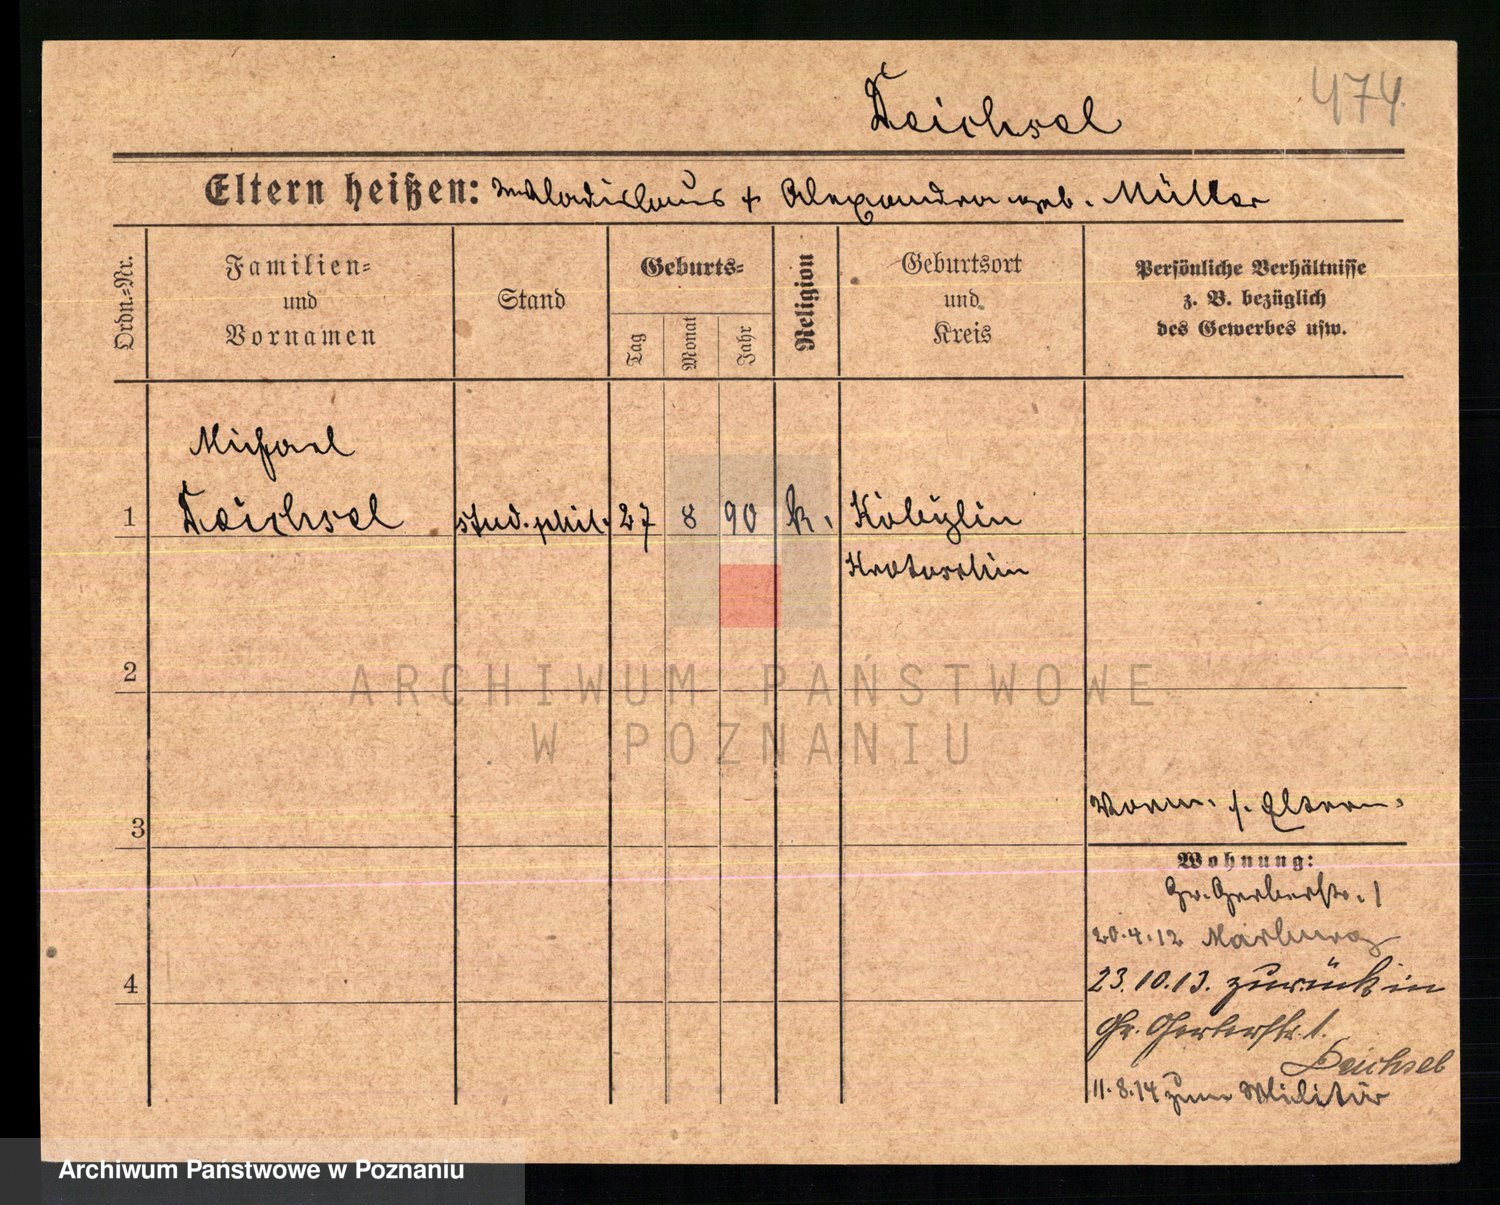 474.
Deichsel
Eltern heißen: Wladislaus + Alexandra geb. Müller
Ordn.=Nr.
Familien=
und
Vornamen
Stand
Geburts=
Tag
Monat
Jahr
Religion
Geburtsort
und
Kreis
Persönliche Verhältnisse
z. B. bezüglich
des Gewerbes usw.
Michael
1 Deichsel stud. phil. 27 8 90 k. Kobylin
Krotoschin
2
ARCHIWUM PAŃSTWOWE
W POZNANIU
3
Vorm. s. Eltern.
Wohnung:
Gr. Gerberstr. 1
20.4.12 Marburg
4
23.10.13. zurück in
Gr. Gerberstr. 1.
Deichsel
11.8.14 zum Militär
Archiwum Państwowe w Poznaniu